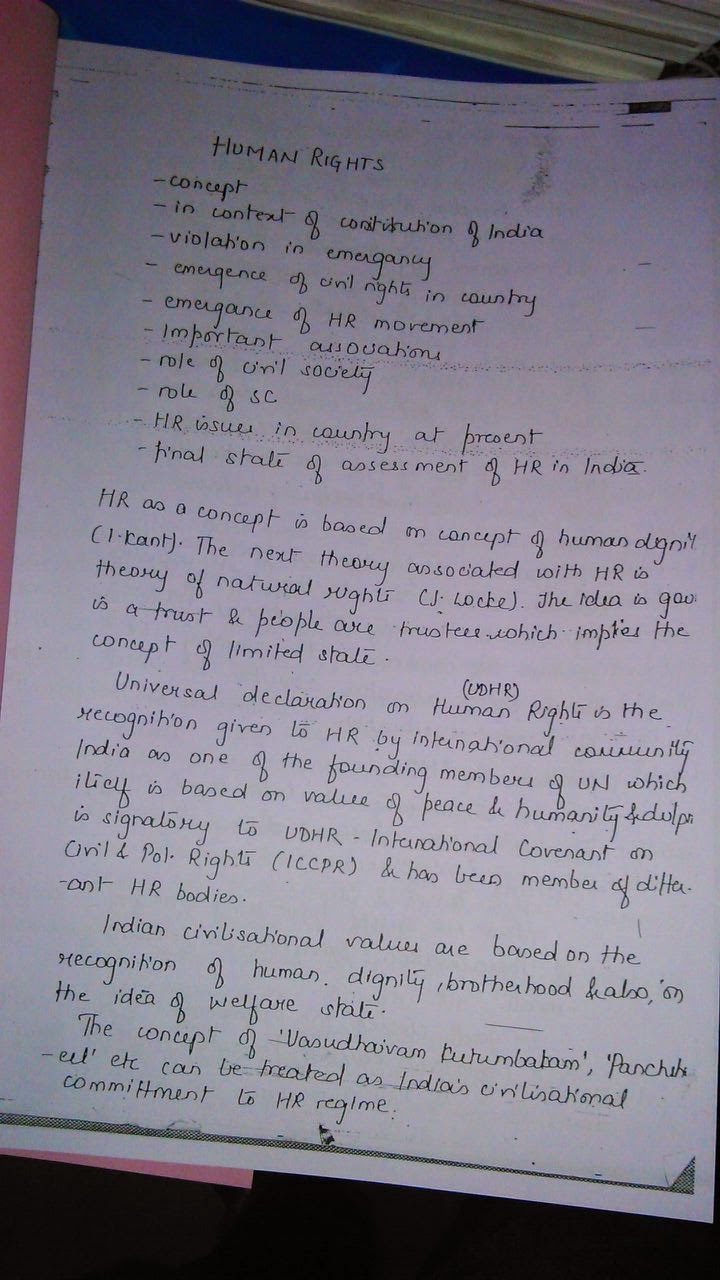 HUMAN RIGHTS
- concept
- in context of constitution of India
- violation in emergancy
- emergence of civil rights in country
- emergance of HR movement
- Important associations
- role of civil society
- role of SC
- HR issues in country at present
- final state of assessment of HR in India.
HR as a concept is based on concept of human dignit
(I.Kant). The next theory associated with HR is
theory of natural rights (J. Locke). The idea is gov
is a trust & people are trustees which implies the
concept of limited state.
(UDHR)
Universal declaration on Human Rights is the
recognition given to HR by international community
India as one of the founding members of UN which
itself is based on value of peace & humanity &
is signatory to UDHR - International Covenant on
Civil & Pol. Rights (ICCPR) & has been member of differ-
-ant HR bodies.
Indian civilisational values are based on the
recognition of human dignity, brotherhood & also, on
the idea of welfare state.
The concept of 'Vasudhaivam Kutumbakam', 'Panchsh
-eel' etc can be treated as India's civilisational
committment to HR regime.